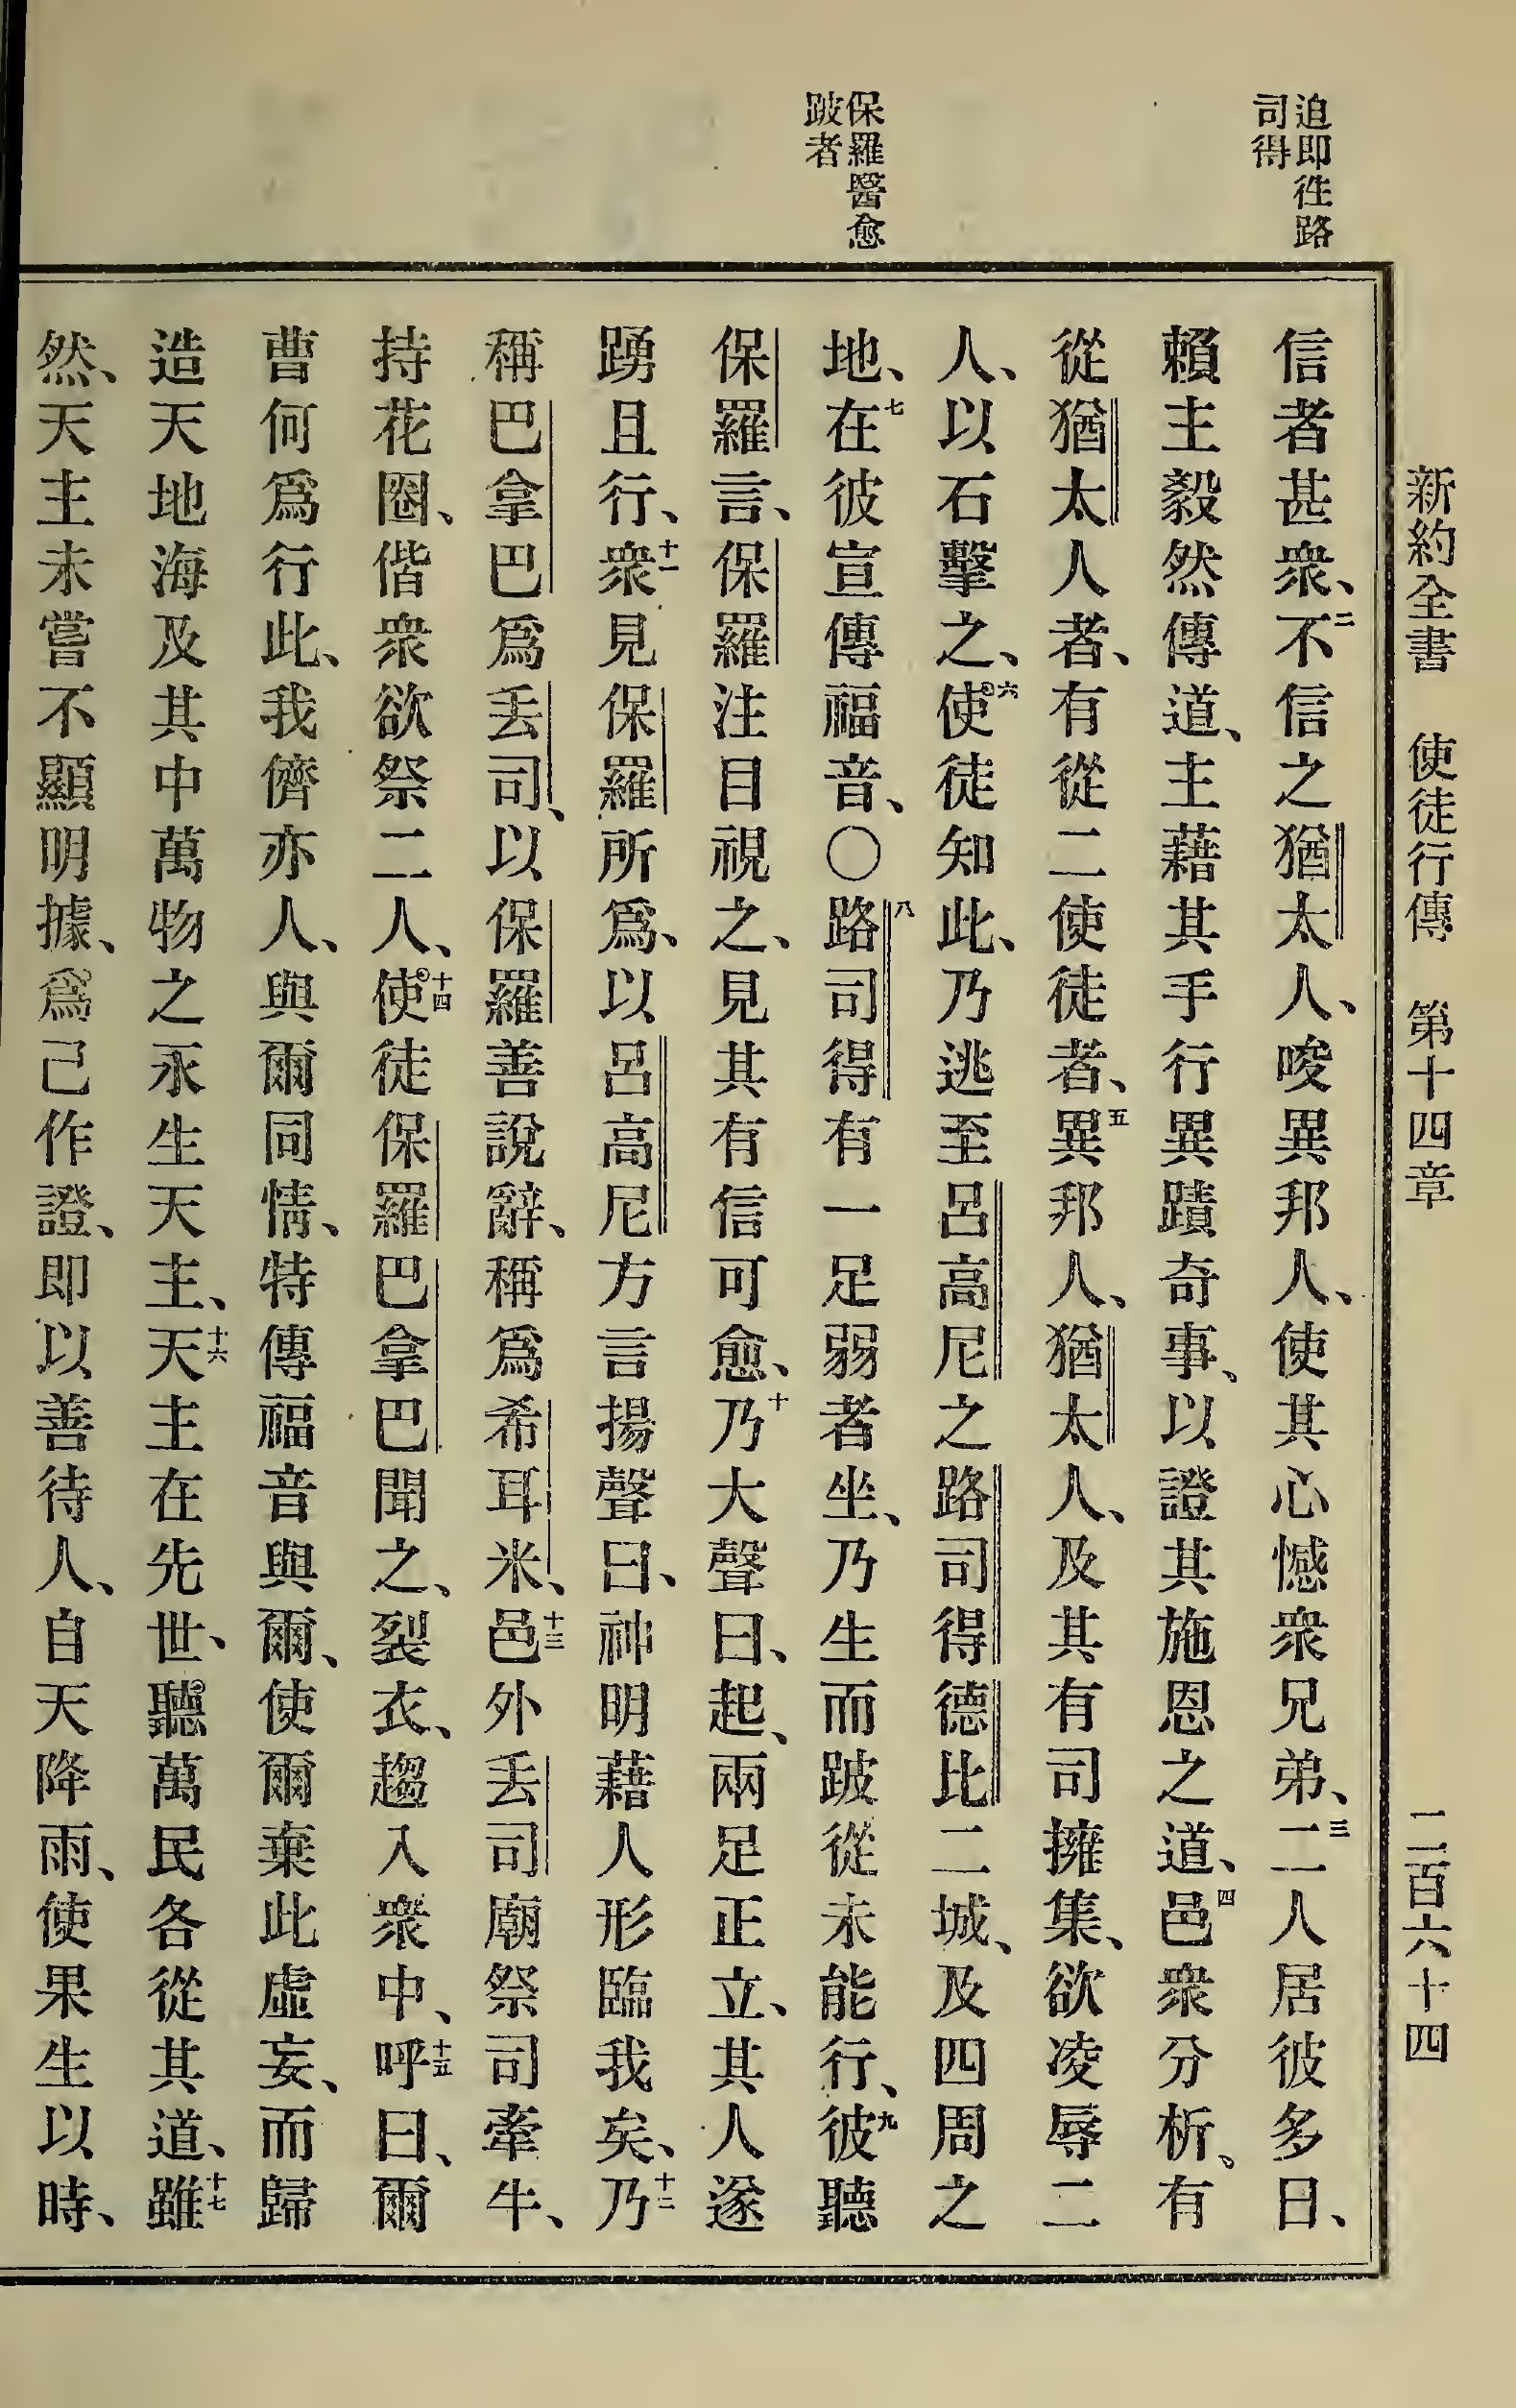 新約全書 使徒行傳 第十四章 二百六十四
迫即徃路
司得
保羅醫愈
跛者
信者甚衆、二不信之猶太人、唆異邦人、使其心憾衆兄弟、三二人居彼多日、
賴主毅然傳道、主藉其手行異蹟奇事、以證其施恩之道、四邑衆分析、有
從猶太人者、有從二使徒者、五異邦人、猶太人、及其有司擁集、欲凌辱二
人、以石擊之、六使徒知此、乃逃至呂高尼之路司得德比二城、及四周之
地、七在彼宣傳福音、〇八路司得有一足弱者坐、乃生而跛從未能行、九彼聽
保羅言、保羅注目視之、見其有信可愈、十乃大聲曰、起、兩足正立、其人遂
踴且行、十一衆見保羅所爲、以呂高尼方言揚聲曰、神明藉人形臨我矣、十二乃
稱巴拿巴爲丟司、以保羅善說辭、稱爲希耳米、十三邑外丟司廟祭司牽牛、
持花圈、偕衆欲祭二人、十四使徒保羅巴拿巴聞之、裂衣、趨入衆中、十五呼曰、爾
曹何爲行此、我儕亦人、與爾同情、特傳福音與爾、使爾棄此虛妄、而歸
造天地海及其中萬物之永生天主、十六天主在先世、聽萬民各從其道、十七雖
然、天主未嘗不顯明據、爲己作證、即以善待人、自天降雨、使果生以時、